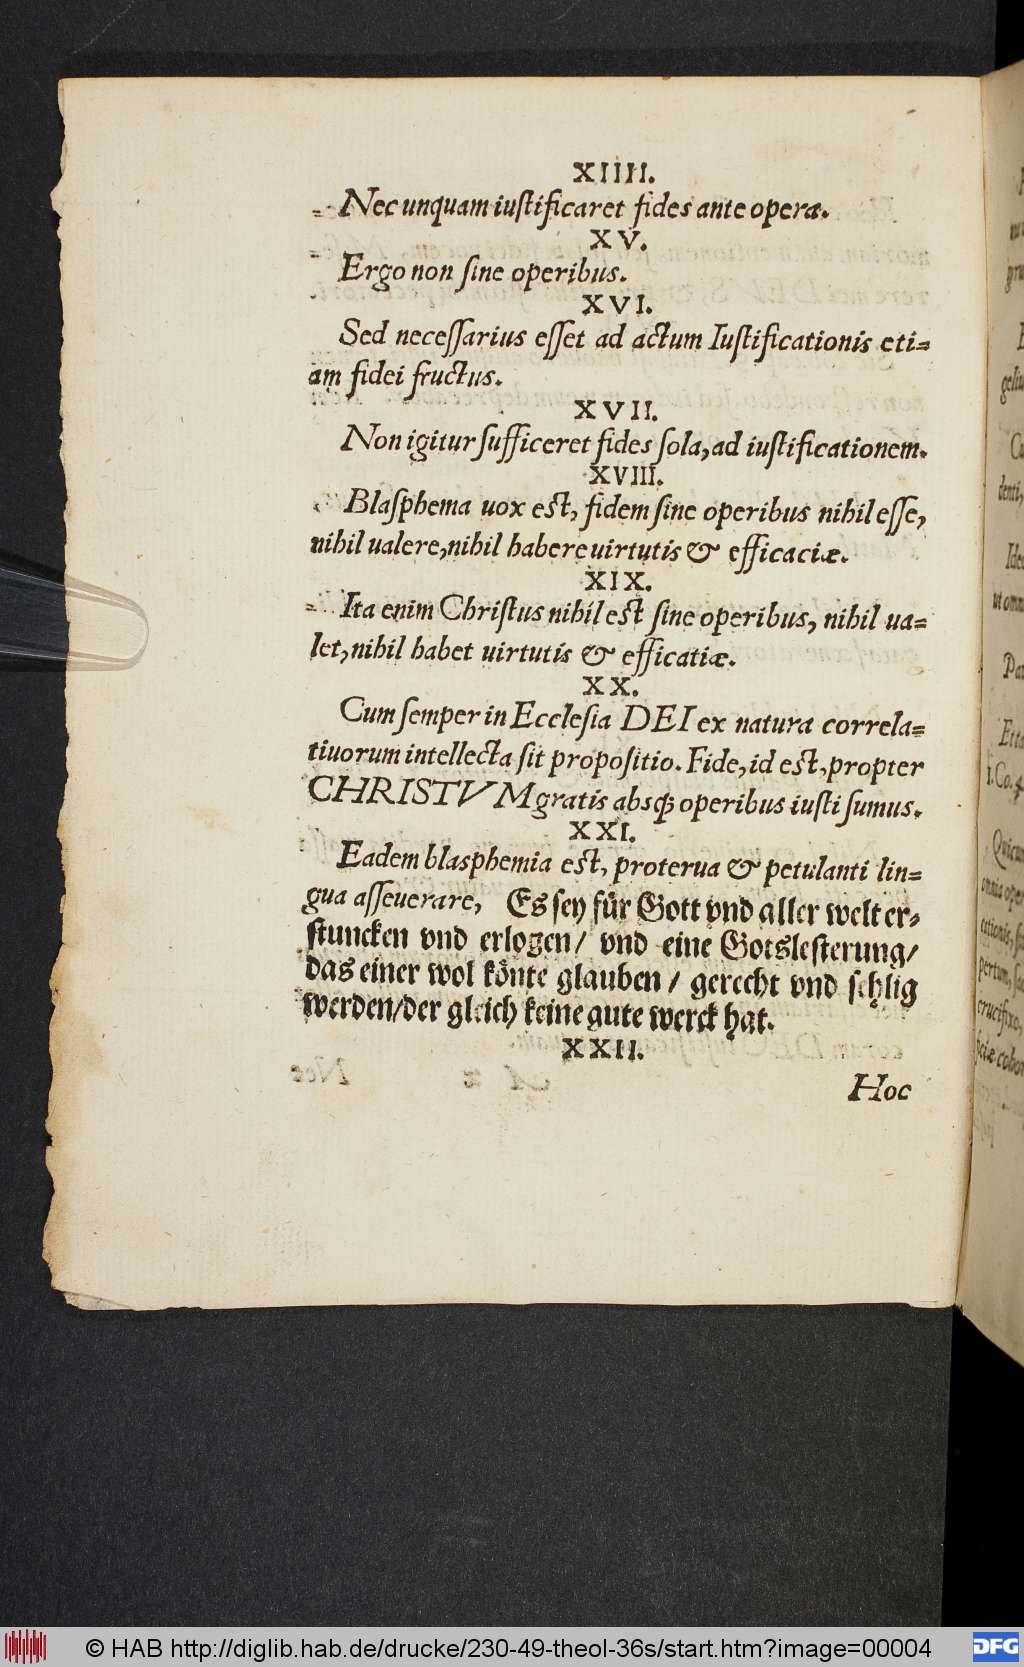 XIIII.
Nec unquam iuſtificaret fides ante opera.
XV.
Ergo non ſine operibus.
XVI.
Sed neceſſarius eſſet ad actum Iuſtificationis eti=
am fidei fructus.
XVII.
Non igitur ſufficeret fides ſola, ad iuſtificationem.
XVIII.
Blaſphema uox eſt, fidem ſine operibus nihil eſſe,
nihil ualere, nihil habere uirtutis & efficaciæ.
XIX.
Ita enim Chriſtus nihil eſt ſine operibus, nihil ua=
let, nihil habet uirtutis & efficatiæ.
XX.
Cum ſemper in Eccleſia DEI ex natura correla=
tiuorum intellecta ſit propoſitio. Fide, id eſt, propter
CHRISTVM gratis absq; operibus iuſti ſumus.
XXI.
Eadem blasphemia eſt, proterua & petulanti lin=
gua aſſeuerare, Es ſey für Gott vnd aller welt er=
ſtuncken vnd erlogen/ vnd eine Gotsleſterung/
das einer wol könte glauben/ gerecht vnd ſehlig
werden/der gleich keine gute werck hat.
XXII.
Hoc
© HAB http://diglib.hab.de/drucke/230-49-theol-36s/start.htm?image=00004
DFG